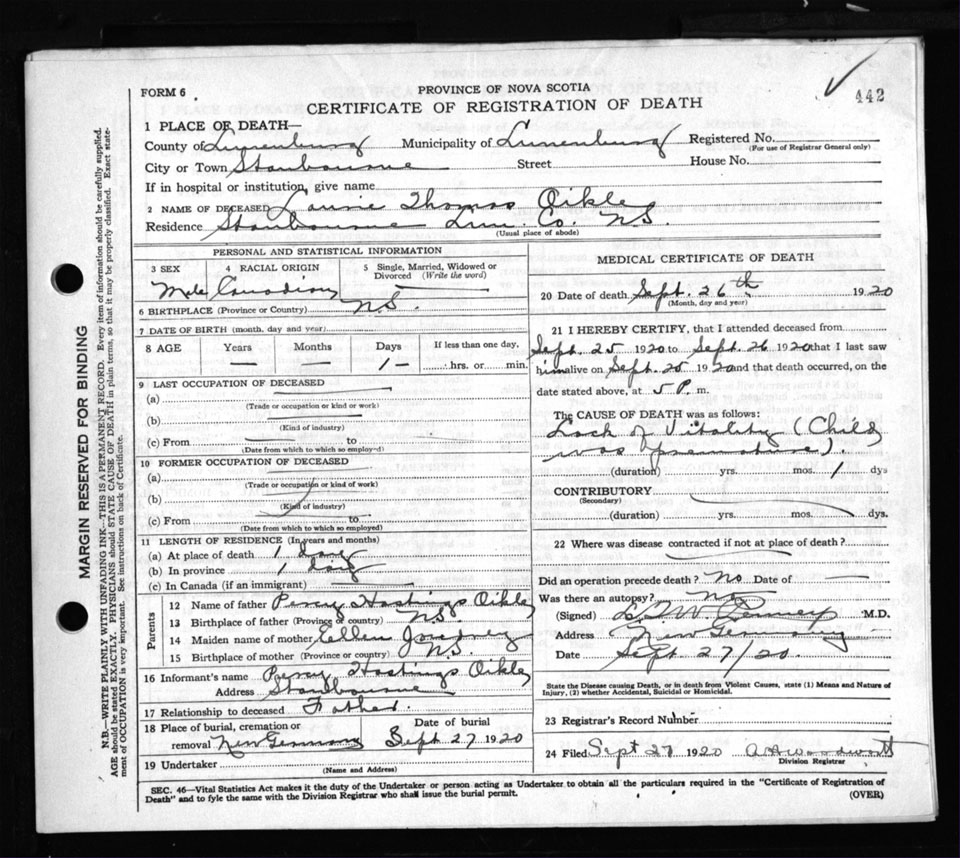 442
FORM 6
PROVINCE OF NOVA SCOTIA
CERTIFICATE OF REGISTRATION OF DEATH
1 PLACE OF DEATH—
County of Lunenburg Municipality of Lunenburg Registered No.
(For use of Registrar General only)
City or Town Stanbourne Street House No.
If in hospital or institution, give name
2 NAME OF DECEASED Laurie Thomas Oikle
Residence Stanbourne Lun. Co. N.S.
(Usual place of abode)
PERSONAL AND STATISTICAL INFORMATION
3 SEX 4 RACIAL ORIGIN 5 Single, Married, Widowed or Divorced (Write the word)
Male Canadian
6 BIRTHPLACE (Province or Country) N.S.
7 DATE OF BIRTH (month, day and year)
8 AGE Years Months Days If less than one day,
— — 1 — hrs. or min.
9 LAST OCCUPATION OF DECEASED
(a)
(Trade or occupation or kind or work)
(b)
(Kind of industry)
(c) From to
(Date from which to which so employed)
10 FORMER OCCUPATION OF DECEASED
(a)
(Trade or occupation or kind of work)
(b)
(Kind of industry)
(c) From to
(Date from which to which so employed)
11 LENGTH OF RESIDENCE (In years and months)
(a) At place of death 1 day
(b) In province 1 day
(c) In Canada (if an immigrant)
Parents
12 Name of father Percy Hastings Oikle
13 Birthplace of father (Province or country) N.S.
14 Maiden name of mother Ellen
15 Birthplace of mother (Province or country) N.S.
16 Informant's name Percy Hastings Oikle
Address Stanbourne
17 Relationship to deceased Father.
18 Place of burial, cremation or removal New Germany Date of burial Sept 27 1920
19 Undertaker
(Name and Address)
MEDICAL CERTIFICATE OF DEATH
20 Date of death Sept. 26th 1920
(Month, day and year)
21 I HEREBY CERTIFY, that I attended deceased from
Sept. 25 1920 to Sept. 26 1920 that I last saw
him alive on Sept. 25 1920 and that death occurred, on the
date stated above, at 5 P. m.
The CAUSE OF DEATH was as follows:
Lack of Vitality (Child
was premature).
(duration) yrs. mos. 1 dys
CONTRIBUTORY
(Secondary)
(duration) yrs. mos. dys.
22 Where was disease contracted if not at place of death?
Did an operation precede death? No Date of —
Was there an autopsy? No
(Signed) M.D.
Address New Germany
Date Sept 27/20.
State the Disease causing Death, or in death from Violent Causes, state (1) Means and Nature of
Injury, (2) whether Accidental, Suicidal or Homicidal.
23 Registrar's Record Number
24 Filed Sept 27 1920
Division Registrar
SEC. 46—Vital Statistics Act makes it the duty of the Undertaker or person acting as Undertaker to obtain all the particulars required in the "Certificate of Registration of
Death" and to fyle the same with the Division Registrar who shall issue the burial permit. (OVER)
MARGIN RESERVED FOR BINDING
N.B.—WRITE PLAINLY WITH UNFADING INK—THIS IS A PERMANENT RECORD. Every item of information should be carefully supplied.
AGE should be stated EXACTLY. PHYSICIANS should STATE CAUSE OF DEATH in plain terms, so that it may be properly classified. Exact state-
ment of OCCUPATION is very important. See instructions on back of Certificate.